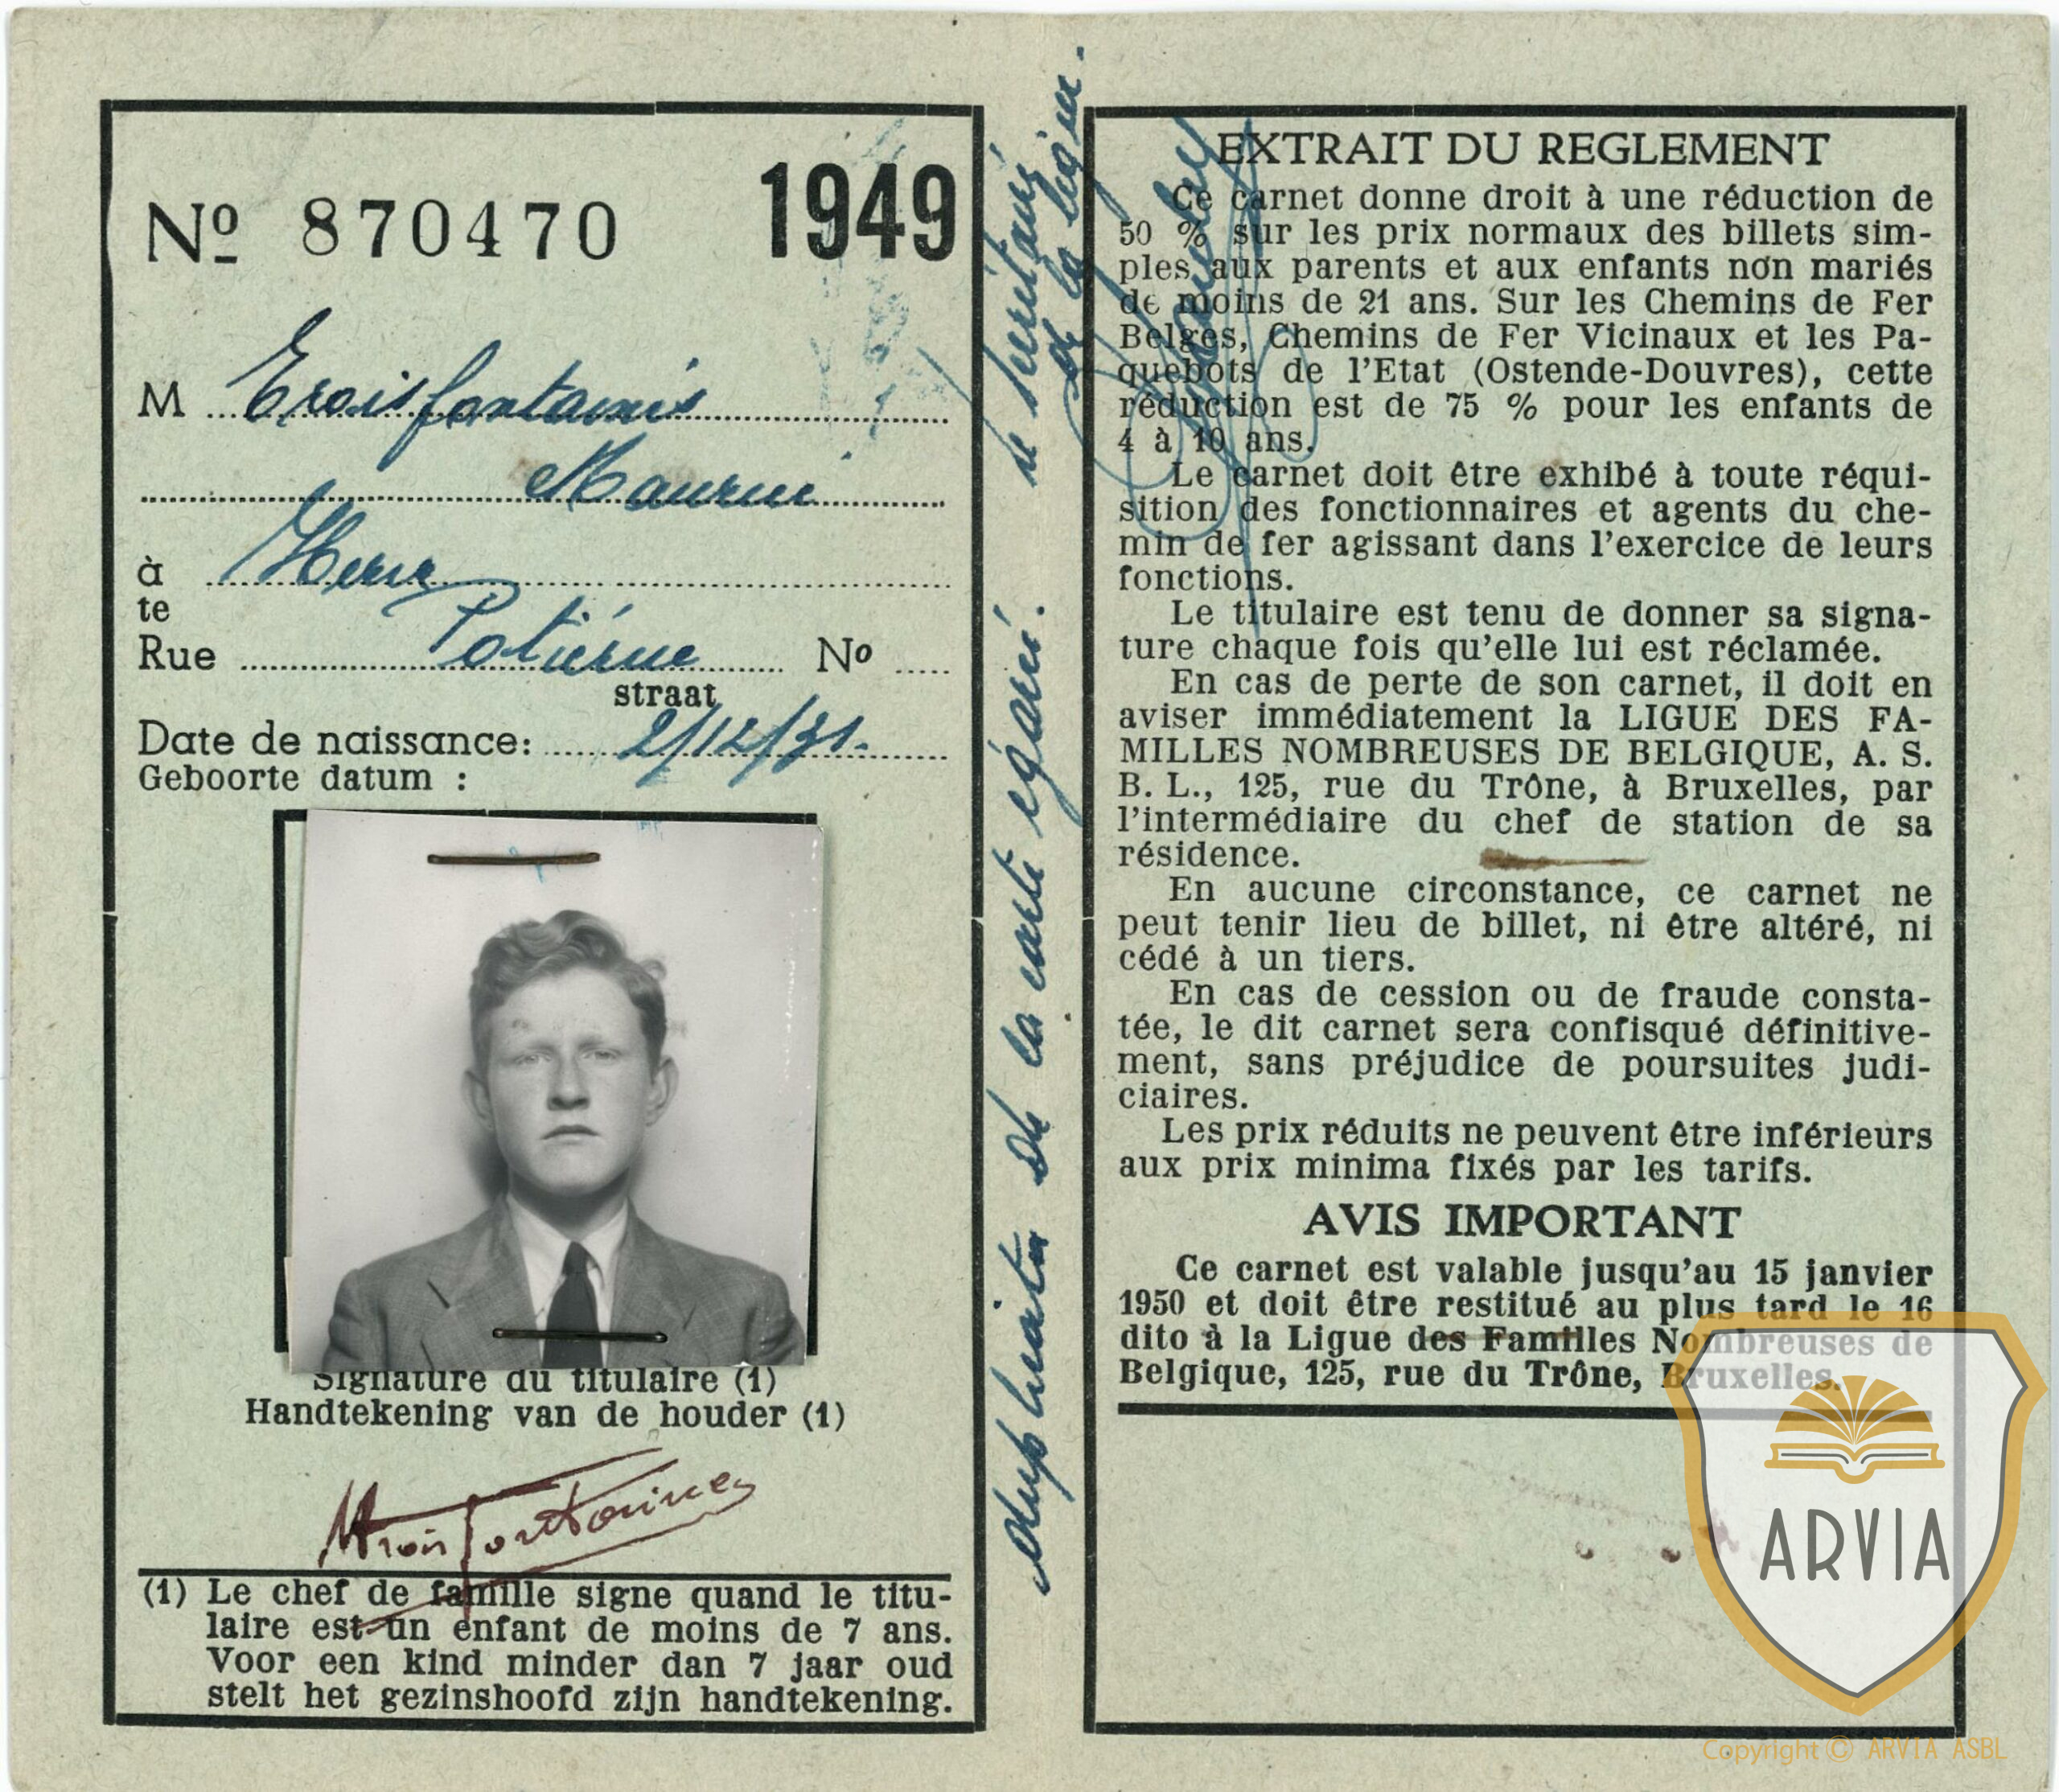 Nº 870470 1949
M Troisfontaines
Maurice
à Herve
te
Rue Potiérue Nº
straat
Date de naissance: 2/12/31.
Geboorte datum :
Signature du titulaire (1)
Handtekening van de houder (1)
Troisfontaines
(1) Le chef de famille signe quand le titu-
laire est un enfant de moins de 7 ans.
Voor een kind minder dan 7 jaar oud
stelt het gezinshoofd zijn handtekening.
duplicata de la carte égarée.
le secrétaire
de la ligue.
EXTRAIT DU REGLEMENT
Ce carnet donne droit à une réduction de
50 % sur les prix normaux des billets sim-
ples aux parents et aux enfants non mariés
de moins de 21 ans. Sur les Chemins de Fer
Belges, Chemins de Fer Vicinaux et les Pa-
quebots de l'Etat (Ostende-Douvres), cette
réduction est de 75 % pour les enfants de
4 à 10 ans.
Le carnet doit être exhibé à toute réqui-
sition des fonctionnaires et agents du che-
min de fer agissant dans l'exercice de leurs
fonctions.
Le titulaire est tenu de donner sa signa-
ture chaque fois qu'elle lui est réclamée.
En cas de perte de son carnet, il doit en
aviser immédiatement la LIGUE DES FA-
MILLES NOMBREUSES DE BELGIQUE, A. S.
B. L., 125, rue du Trône, à Bruxelles, par
l'intermédiaire du chef de station de sa
résidence.
En aucune circonstance, ce carnet ne
peut tenir lieu de billet, ni être altéré, ni
cédé à un tiers.
En cas de cession ou de fraude consta-
tée, le dit carnet sera confisqué définitive-
ment, sans préjudice de poursuites judi-
ciaires.
Les prix réduits ne peuvent être inférieurs
aux prix minima fixés par les tarifs.
AVIS IMPORTANT
Ce carnet est valable jusqu'au 15 janvier
1950 et doit être restitué au plus tard le 16
dito à la Ligue des Familles Nombreuses de
Belgique, 125, rue du Trône, Bruxelles.
ARVIA
Copyright © ARVIA ASBL